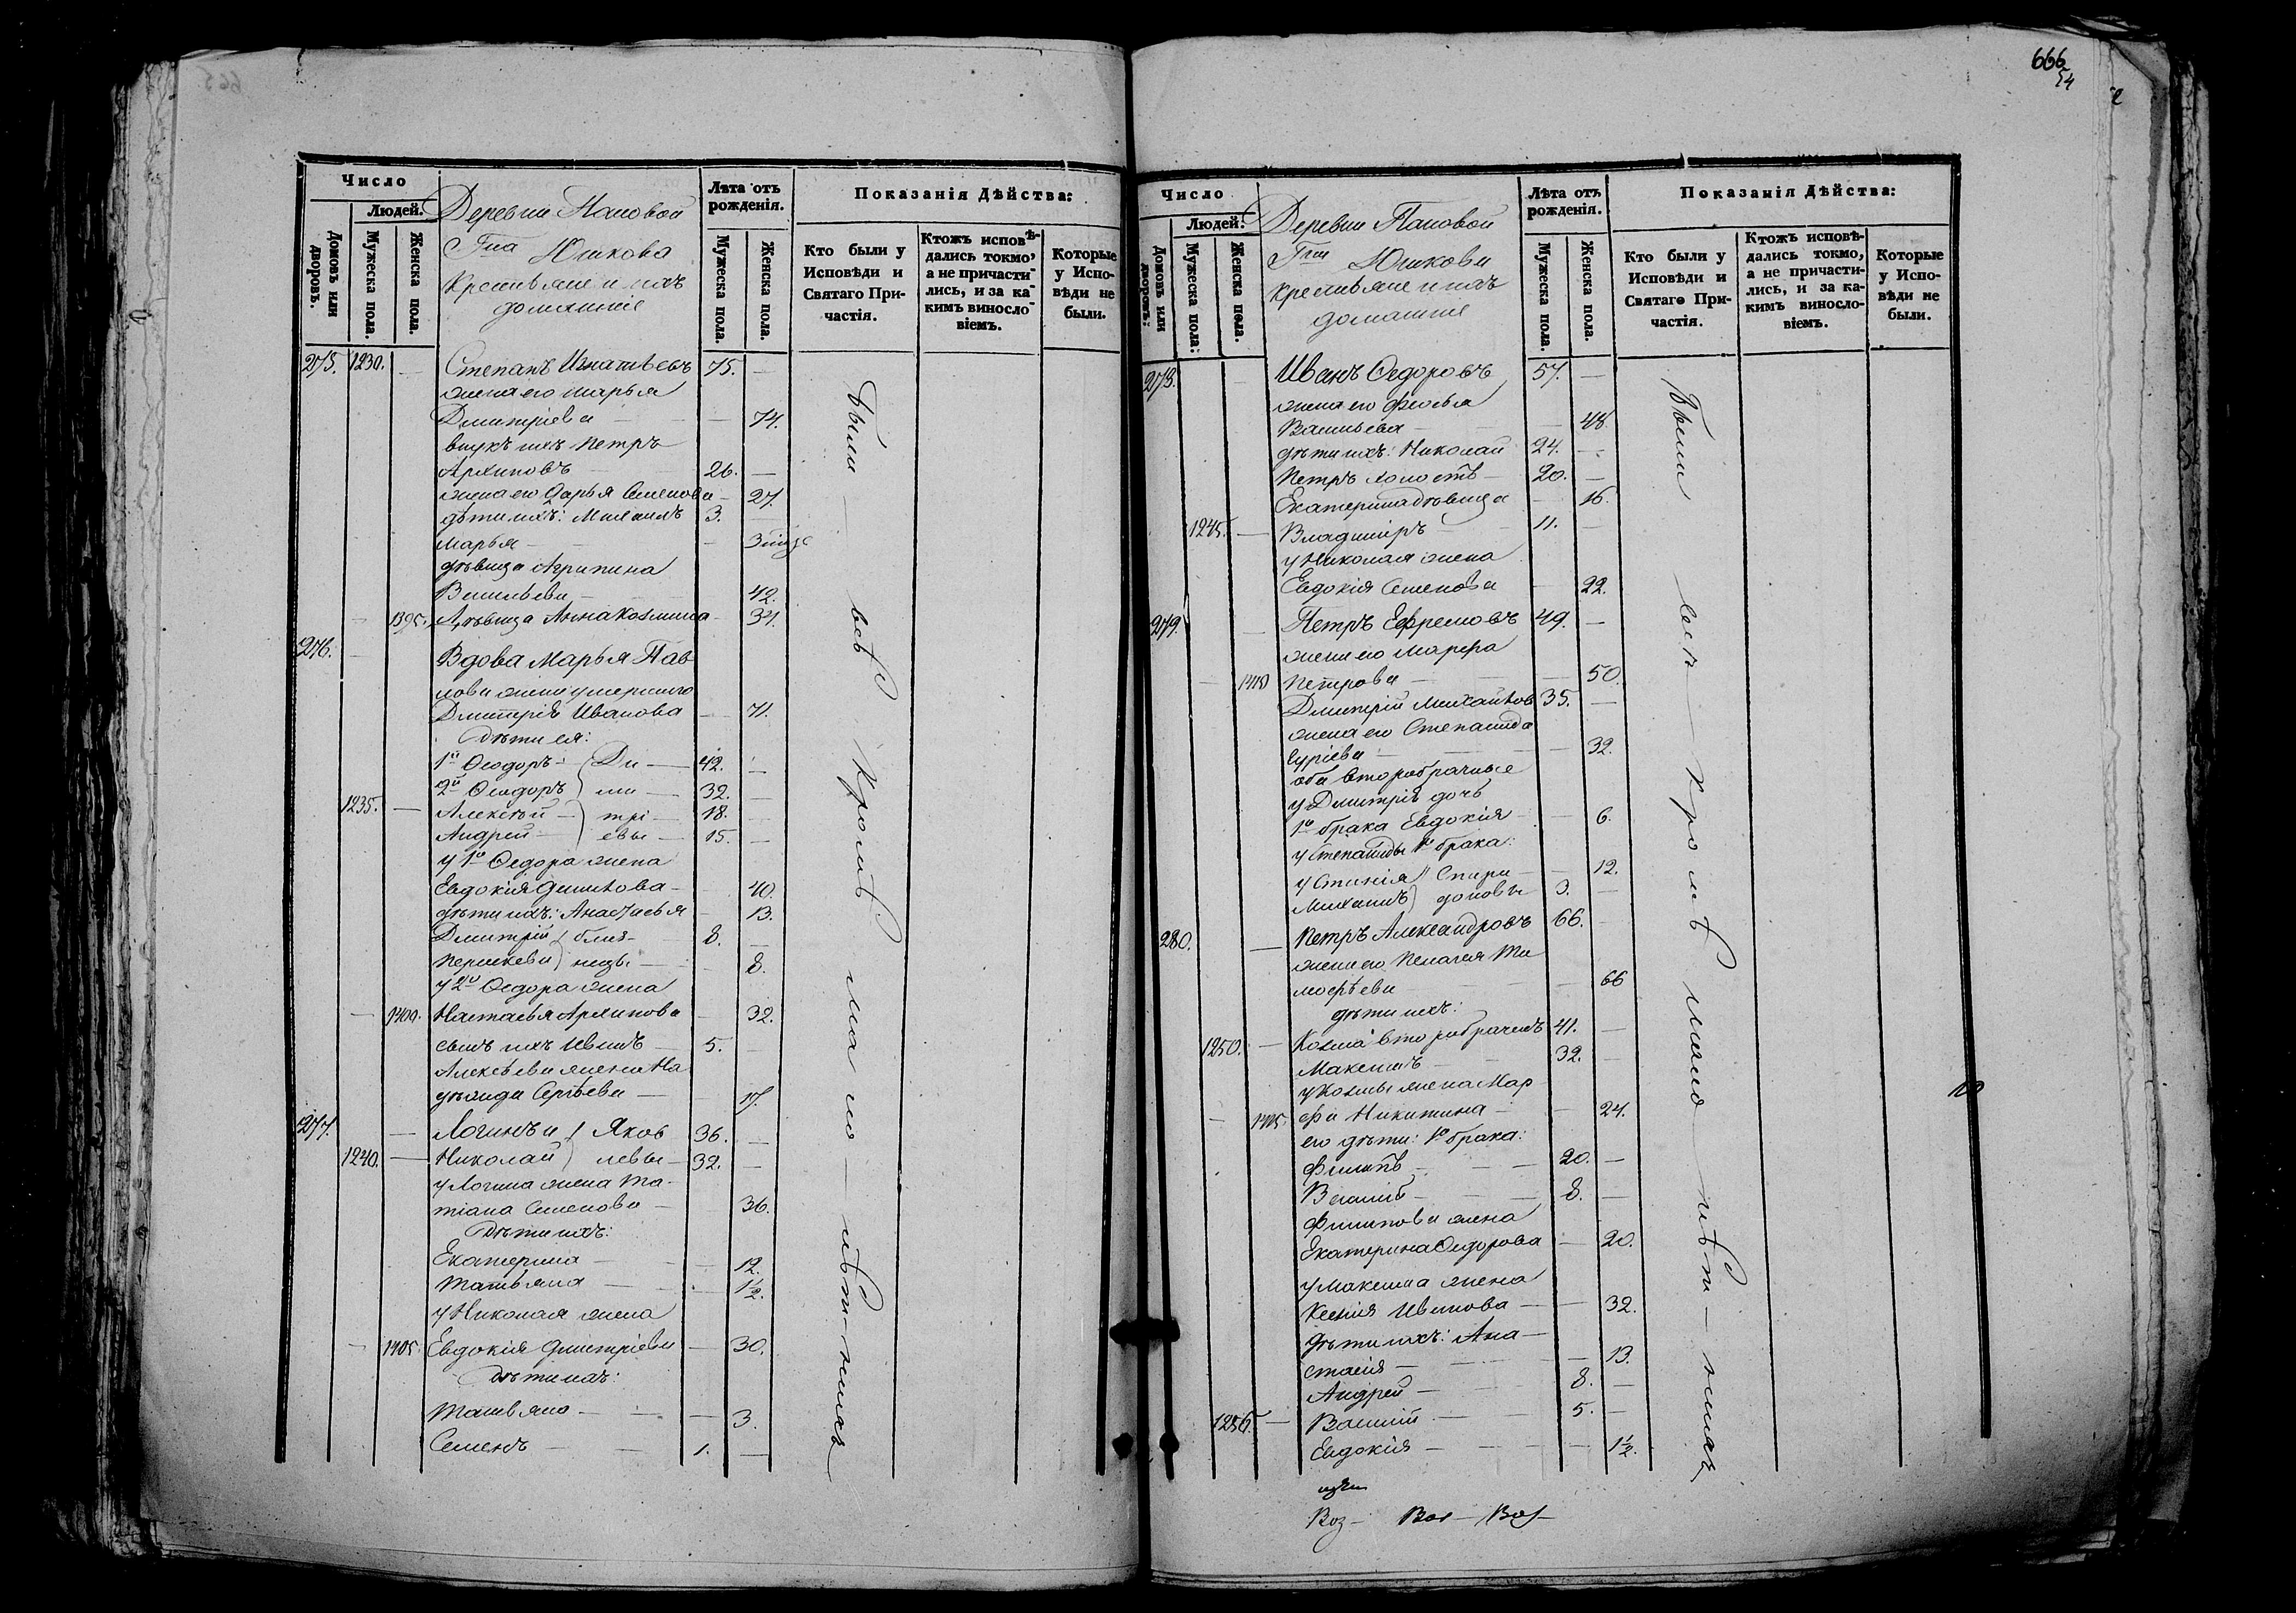 666
54
Число
Людей.
Домовъ или дворовъ.
Мужеска пола.
Женска пола.
Деревни Пановой
Гна Юшкова
крестьяне и ихъ
домашніе
Лѣта отъ рожденія.
Мужеска пола.
Женска пола.
Показанія Дѣйства:
Кто были у Исповѣди и Святаго Причастія.
Ктожъ исповѣдались токмо, а не причастились, и за какимъ винословіемъ.
Которые у Исповѣди не были.
275. 1230. — Степанъ Игнатьевъ 75. —
жена его Марья
Дмитріева — 74.
внукъ ихъ Петръ
Архиповъ 26. —
жена его Дарья Семенова — 27.
дѣти ихъ: Михаилъ 3. —
Марья — —
дѣвица Агрипина
Васильева — 42.
— 1395. Дѣвица Анна Козмина — 34.
276. — Вдова Марья Пав
лова жена умершаго
Дмитрія Иванова — 71.
Дѣти ея:
1й Ѳеодоръ — Ди — 42. —
2й Ѳеодоръ ми — 32. —
1235. — Алексѣй — трі — 18. —
Андрей — евы — 15. —
у 1го Ѳедора жена
Евдокія — 40.
дѣти ихъ: Анастасья — 13.
Дмитрій близ- 8. —
Параскева нецы — 8.
у 2го Ѳедора жена
— 1400. Настасья Архипова — 32.
сынъ ихъ Иванъ — 5. —
Алексѣева жена На
дѣжда Сергѣева — 17.
277. — Логинъ и Яков 36. —
1240. — Николай левы — 32. —
у Логина жена Та-
тіана Семенова — 36.
Дѣти ихъ:
Екатерина — — 12.
Татьяна — — 1½.
у Николая жена
— 1405. Евдокія Дмитріева — 30.
Дѣти ихъ:
Татьяна — — 3.
Семенъ — — 1. —
были — всѣ кромѣ мало — лѣт-нихъ
Число
Людей.
Домовъ или дворовъ.
Мужеска пола.
Женска пола.
Деревни Пановой
Гна Юшкова
крестьяне и ихъ
домашніе
Лѣта отъ рожденія.
Мужеска пола.
Женска пола.
Показанія Дѣйства:
Кто были у Исповѣди и Святаго Причастія.
Ктожъ исповѣдались токмо, а не причастились, и за какимъ винословіемъ.
Которые у Исповѣди не были.
278. — Иванъ Ѳедоровъ 57. —
жена его
Васильева — — 48.
дѣти ихъ: Николай 24. —
Петръ холостъ — 20. —
Екатерина дѣвица — 16.
1245. — Владиміръ — 11. —
у Николая жена
Евдокія Семенова — 22.
279. — Петръ Ефремовъ 49. —
жена его Марѳа
— 1410 Петрова — — 50.
Дмитрій Михайлов 35. —
жена его Степанида
Гуріева — — 32.
оба второбрачные
у Дмитрія дочь
1го брака Евдокія — 6.
у Степаниды 1го брака:
Устинія Спири — 12.
Михаилъ доновы 3. —
280. — Петръ Александровъ 66. —
жена его Пелагея Ти
моѳѣева — — 66
дѣти ихъ:
1250. — Козма второбрачный 41. —
Максимъ — 32. —
у Козмы жена Мар
— 1415. фа Никитина — 24.
его дѣти: 1го брака:
Филипъ — — 20. —
Василій — — 8. —
Филипова жена
Екатерина Ѳедорова — 20.
у Максима жена
Ксенія Иванова — — 32.
дѣти ихъ: Ана —
стасія — — 13.
Андрей — 8. —
1256. — Василій — 5. —
Евдокія — — 1½.
Были всѣ — кромѣ мало лѣт — нихъ
Воз — Воз — Воз —